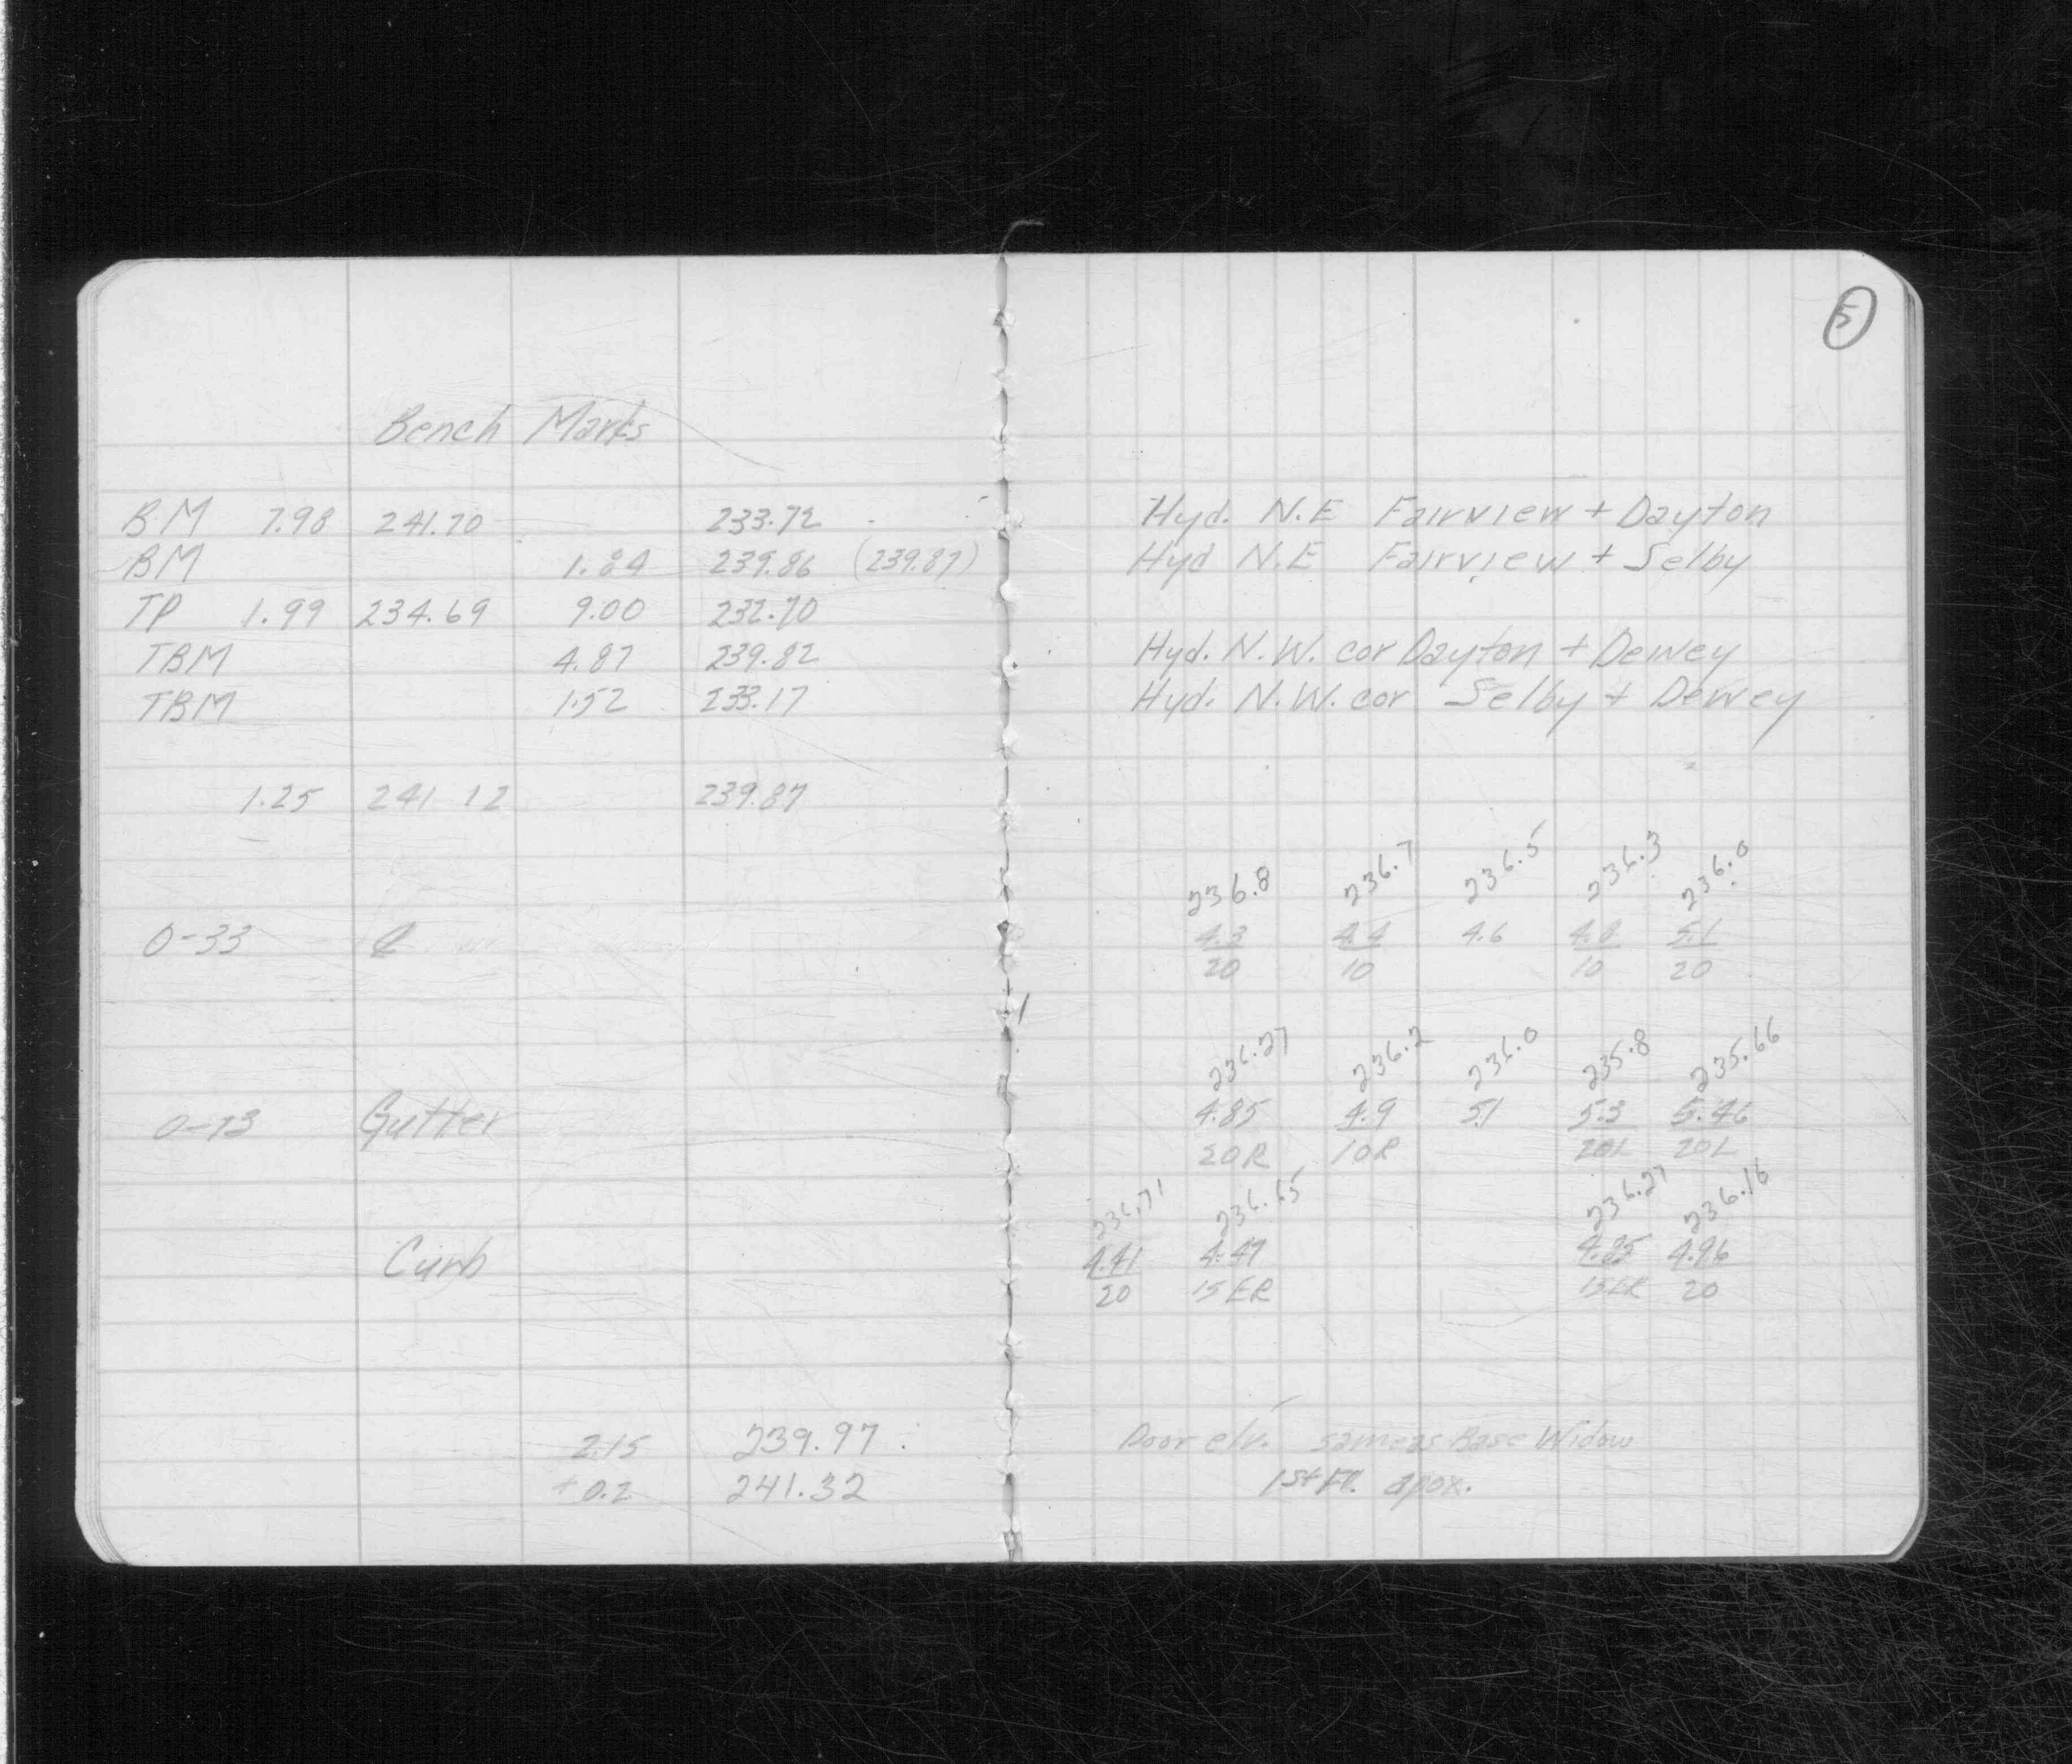 5
Bench Marks
BM 7.98 241.70 233.72 Hyd. N.E Fairview + Dayton
BM 1.84 239.86 (239.87) Hyd N.E Fairview + Selby
TP 1.99 234.69 9.00 232.70
TBM 4.87 239.82 Hyd. N.W. cor Dayton + Dewey
TBM 1.52 233.17 Hyd. N.W. cor Selby + Dewey
1.25 241 12 239.87
236.8 236.7 236.5 236.3 236.0
0-33 ℄ 4.3 4.4 4.6 4.8 5.1
20 10 10 20
236.27 236.2 236.0 235.8 235.66
0-73 Gutter 4.85 4.9 5.1 5.3 5.46
20R 10R 20L
236.71 236.65 236.27 236.16
Curb 4.41 4.47 4.85 4.96
20 15 ER 15 ER 20
2.15 239.97 Door elv. same as Base Widow
+0.2 241.32 1st Fl. apox.